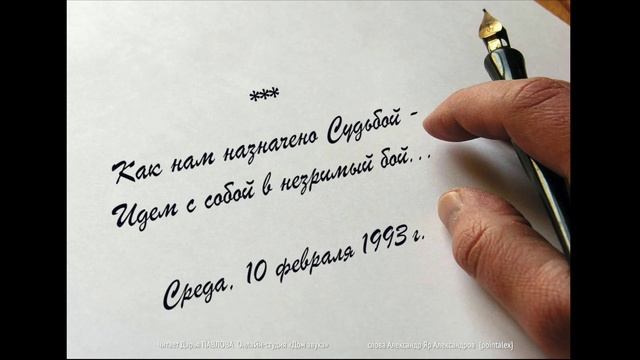 ***
Как нам назначено Судьбой -
Идем с собой в незримый бой...
Среда, 10 февраля 1993 г.
читает Дарья ПАВЛОВА. Онлайн-студия «Дом звука» слова Александр Яр Александров [pointalex]